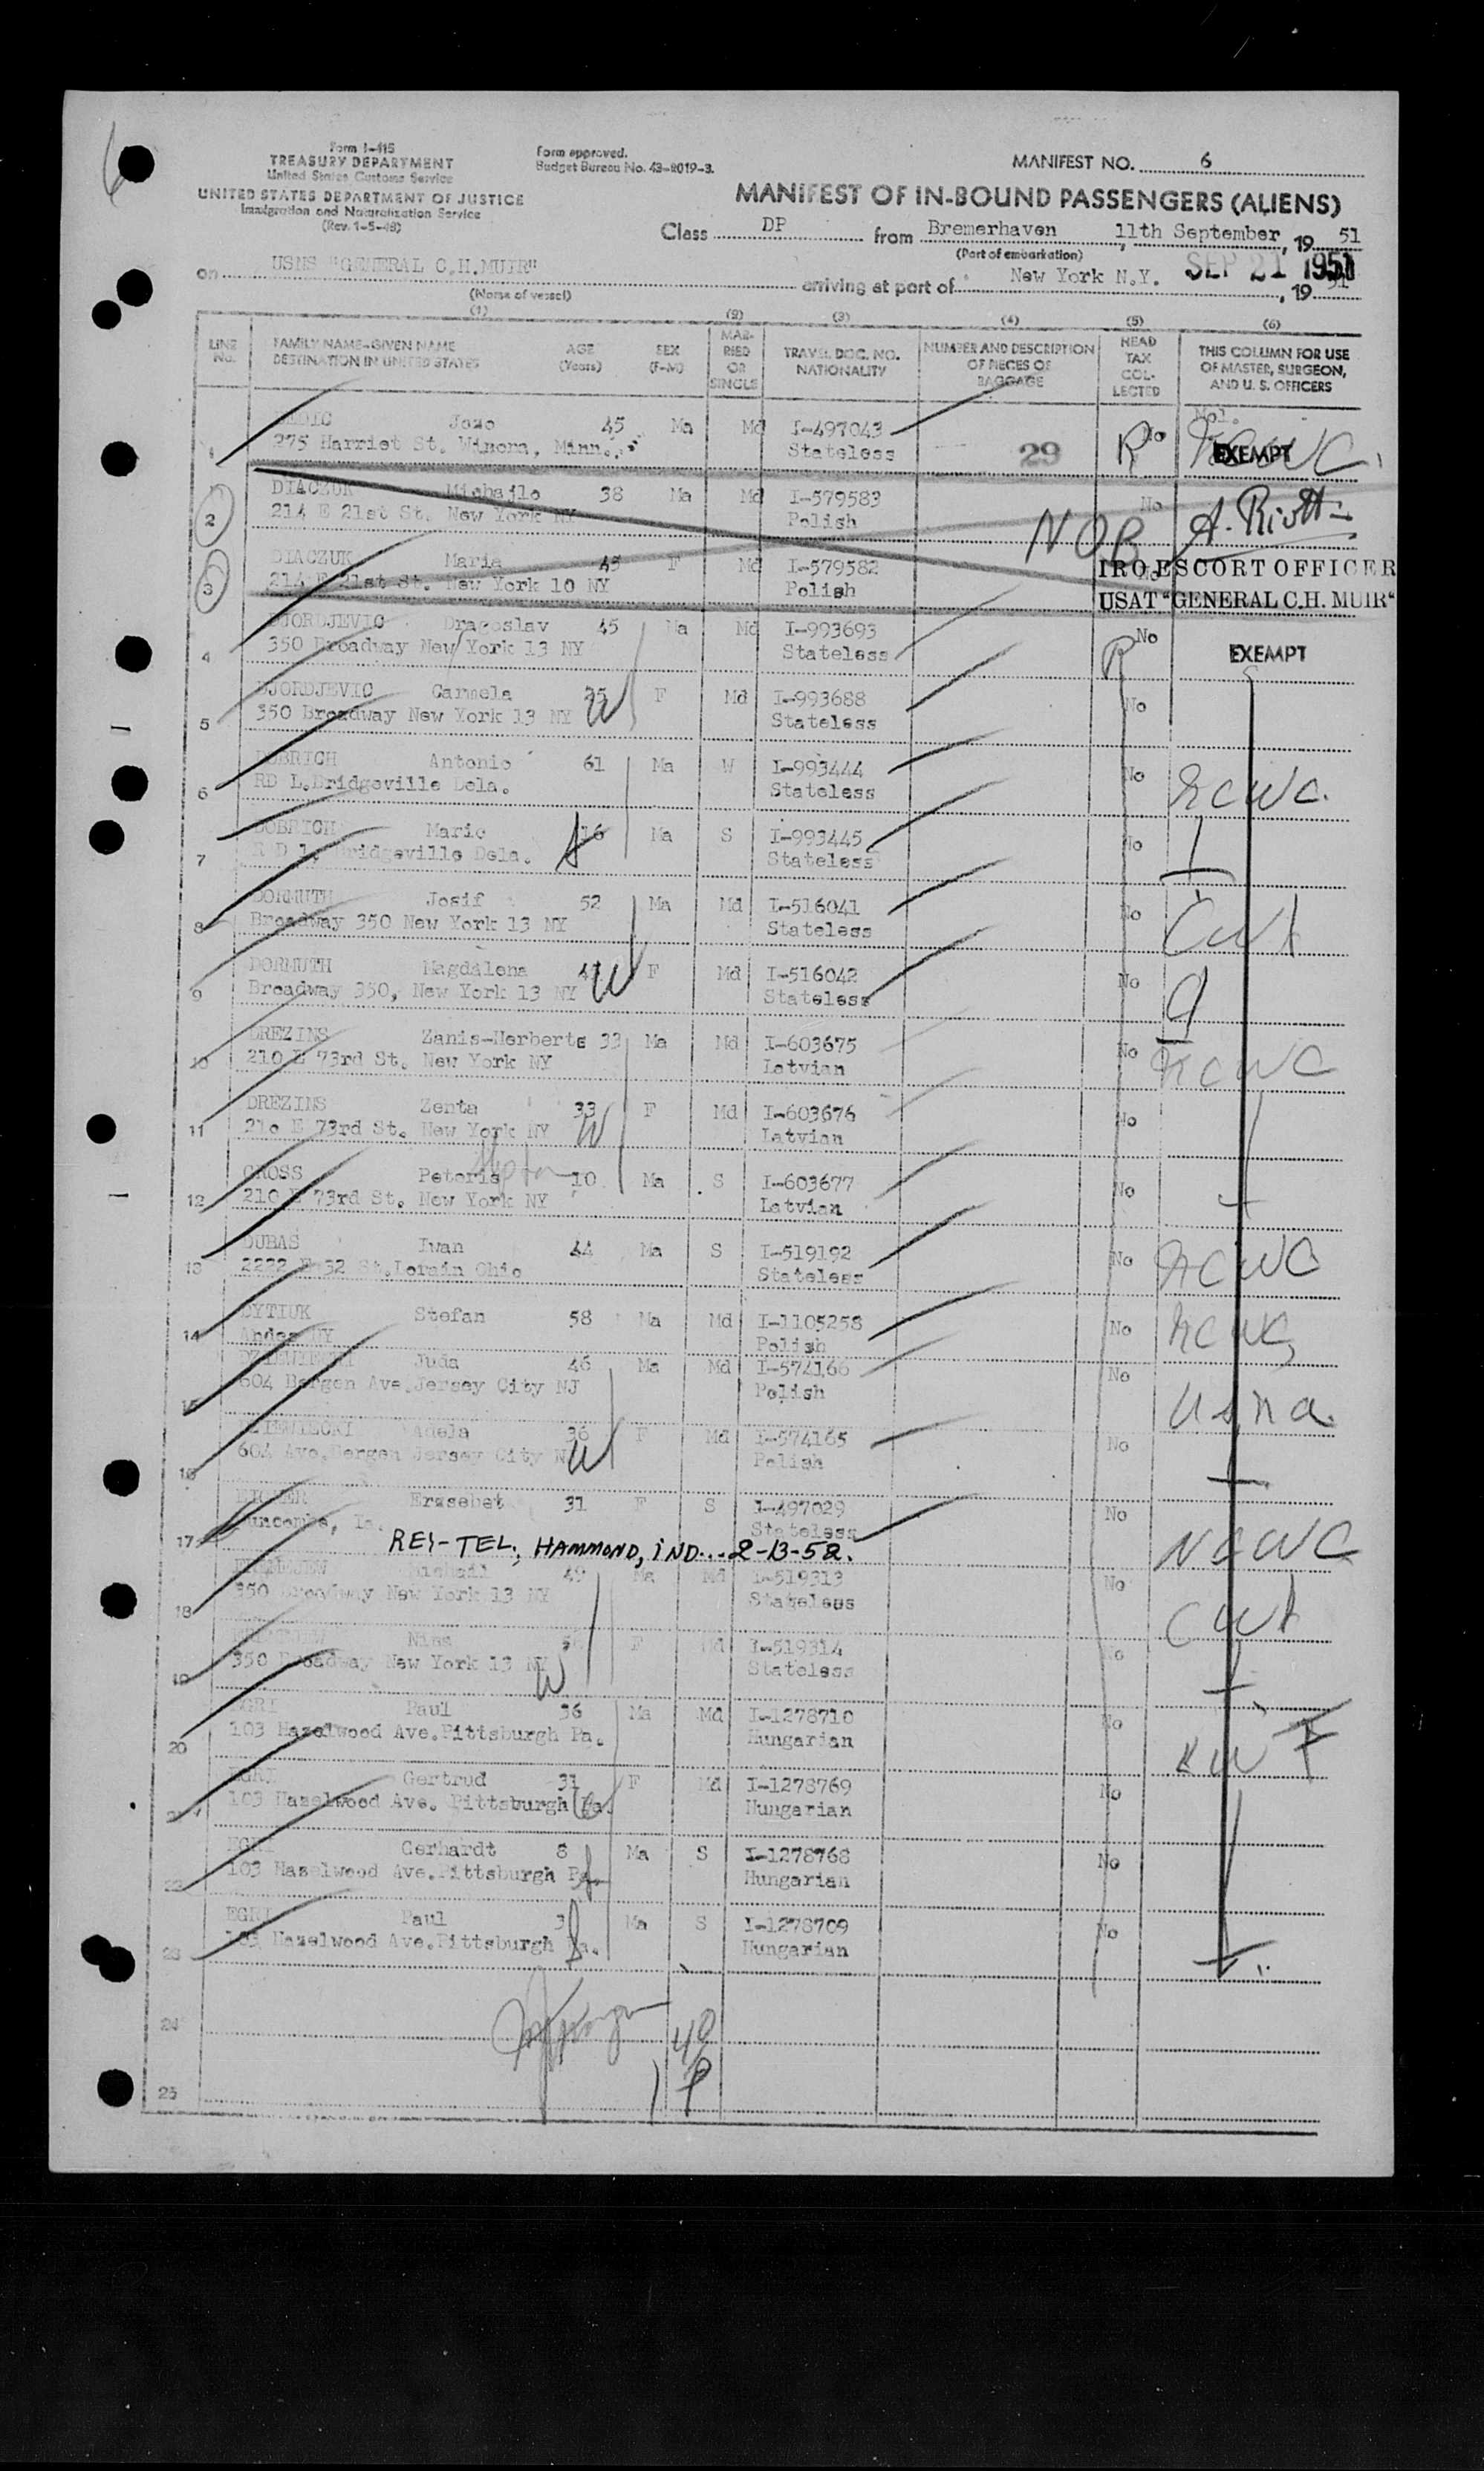 6
Form I-415
TREASURY DEPARTMENT
United States Customs Service
UNITED STATES DEPARTMENT OF JUSTICE
Immigration and Naturalization Service
(Rev. 1-5-48)
Form approved.
Budget Bureau No. 43-R019-3.
MANIFEST NO. 6
MANIFEST OF IN-BOUND PASSENGERS (ALIENS)
Class DP from Bremerhaven, 11th September, 19 51
(Port of embarkation)
on USNS "GENERAL C.H.MUIR" arriving at port of New York N.Y. SEP 21 1951, 19 51
(Name of vessel)
(1) (2) (3) (4) (5) (6)
LINE No.
FAMILY NAME-GIVEN NAME
DESTINATION IN UNITED STATES
AGE (Years)
SEX (F-M)
MARRIED OR SINGLE
TRAVEL DOC. NO.
NATIONALITY
NUMBER AND DESCRIPTION OF PIECES OF BAGGAGE
HEAD TAX COLLECTED
THIS COLUMN FOR USE OF MASTER, SURGEON, AND U. S. OFFICERS
1 Jozo 45 Ma Md I-497043 No
275 Harriet St. Winona, Minn. Stateless 29 R EXEMPT
2 DIACZUK Michajlo 38 Ma Md I-579583 No
214 E 21st St. New York NY Polish NOB A.
3 DIACZUK Maria 45 F Md I-579582 No
214 E 21st St. New York 10 NY Polish
IRO ESCORT OFFICER
USAT "GENERAL C.H. MUIR"
4 DJORDJEVIC Dragoslav 45 Ma Md I-993693 No
350 Broadway New York 13 NY Stateless R EXEMPT
5 DJORDJEVIC Carmela 35 F Md I-993688 No
350 Broadway New York 13 NY W Stateless
6 DOBRICH Antonio 61 Ma W I-993444 No
RD L.Bridgeville Dela. Stateless NCWC.
7 DOBRICH Mario 16 Ma S I-993445 No
R D 1, Bridgeville Dela. Stateless
8 DORMUTH Josif 52 Ma Md I-516041 No
Broadway 350 New York 13 NY Stateless
9 DORMUTH Magdalena F Md I-516042 No
Broadway 350, New York 13 NY W Stateless
10 DREZINS Zanis-Herberts 33 Ma Md I-603675 No
210 E 73rd St. New York NY Latvian NCWC
11 DREZINS Zenta 33 F Md I-603676 No
210 E 73rd St. New York NY W Latvian
12 GROSS Peteris 10 Ma S I-603677 No
210 E 73rd St. New York NY Latvian
13 DUBAS Iwan 44 Ma S I-519192 No
2222 E 32 St.Lorain Ohio Stateless NCWC
14 DYTIUK Stefan 58 Ma Md I-1105258 No
NY Polish NCWC
15 Juda 46 Ma Md I-574166 No
604 Bergen Ave.Jersey City NJ Polish Usna.
16 DZIEWIECKI Adela 36 F Md I-574165 No
604 Ave.Bergen Jersey City W Polish
17 Erzsebet 31 F S I-497029 No
Stateless NCWC
REY-TEL., HAMMOND, IND... 2-13-52.
18 Michail 49 Ma Md I-519313 No
350 Broadway New York 13 NY Stateless
19 Nina F Md I-519314 No
350 Broadway New York 13 NY W Stateless
20 EGRI Paul 36 Ma Md I-1278710 No
103 Hazelwood Ave.Pittsburgh Pa. Hungarian
21 EGRI Gertrud 31 F Md I-1278769 No
103 Hazelwood Ave. Pittsburgh Pa. Hungarian
22 EGRI Gerhardt 8 Ma S I-1278768 No
103 Haselwood Ave.Pittsburgh Pa. Hungarian
23 EGRI Paul 3 Ma S I-1278709 No
103 Hazelwood Ave.Pittsburgh Pa. Hungarian
24
25